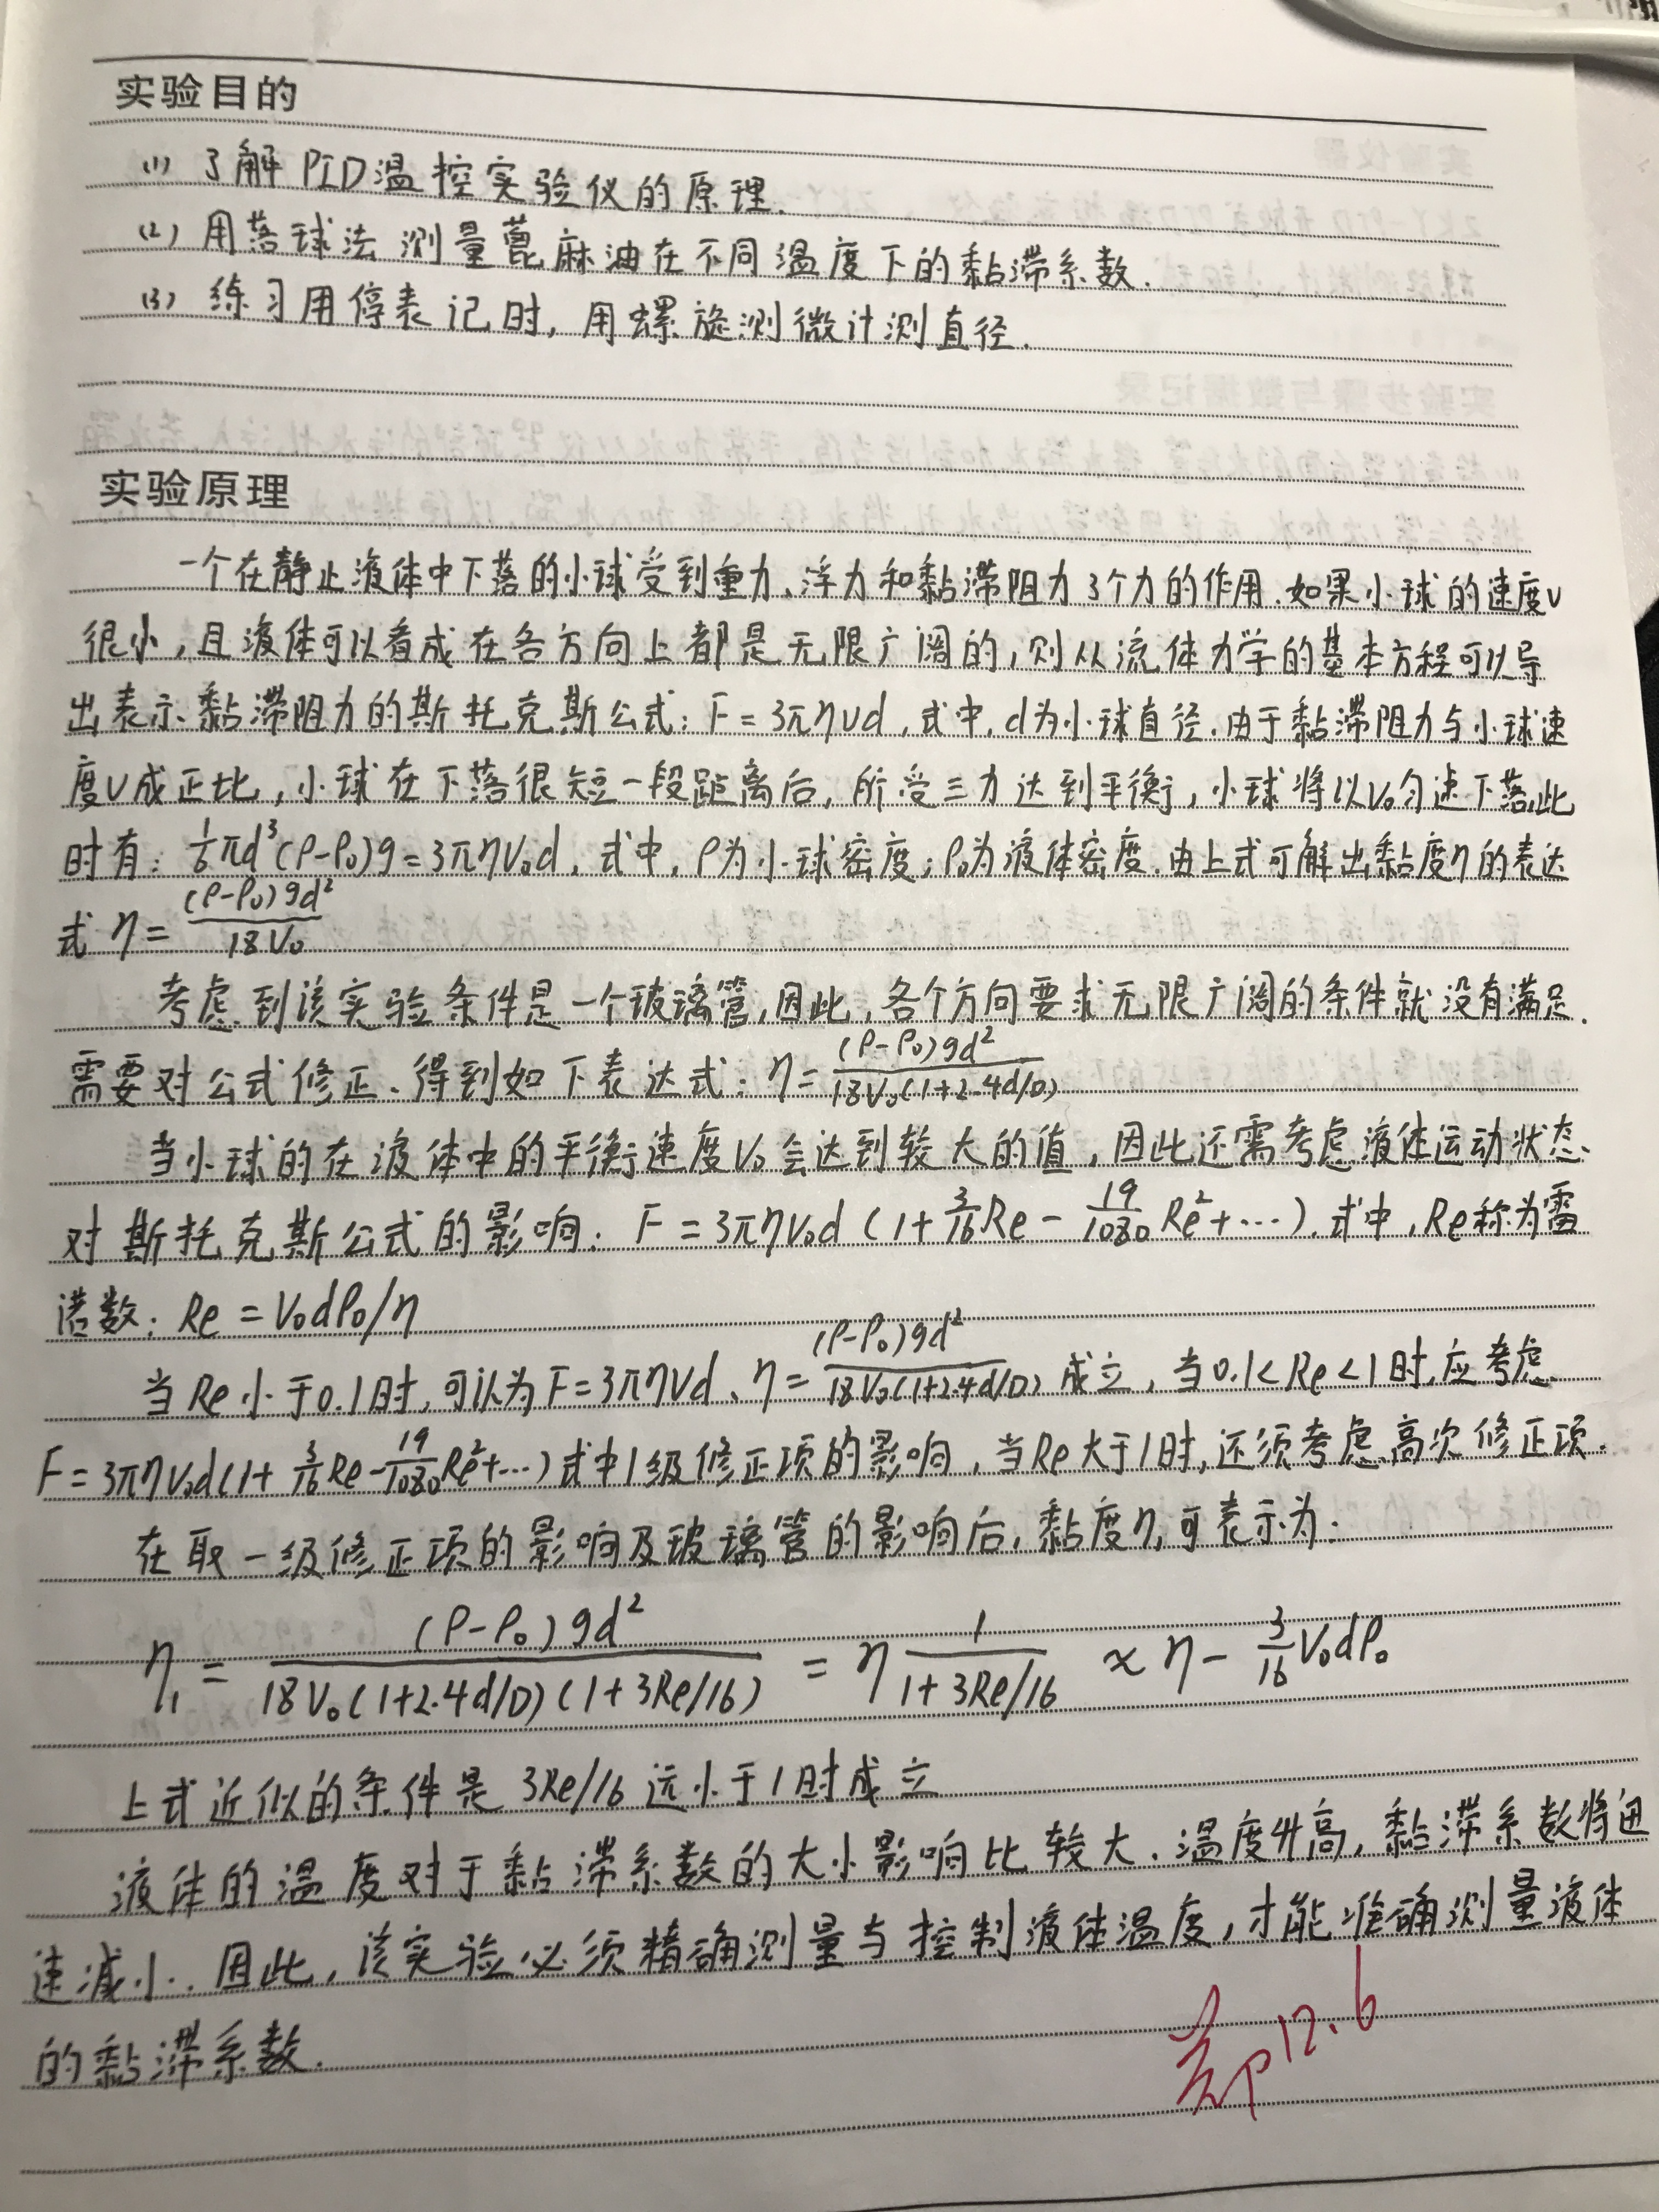 实验目的
(1) 了解PID温控实验仪的原理.
(2) 用落球法测量蓖麻油在不同温度下的黏滞系数.
(3) 练习用停表记时,用螺旋测微计测直径.
实验原理
一个在静止液体中下落的小球受到重力、浮力和黏滞阻力3个力的作用.如果小球的速度v
很小,且液体可以看成在各方向上都是无限广阔的,则从流体力学的基本方程可以导
出表示黏滞阻力的斯托克斯公式: F=3πηvd,式中,d为小球直径.由于黏滞阻力与小球速
度v成正比,小球在下落很短一段距离后,所受三力达到平衡,小球将以v₀匀速下落,此
时有: 1/6πd³(ρ-ρ₀)g=3πηv₀d,式中,ρ为小球密度;ρ₀为液体密度.由上式可解出黏度η的表达
式 η=(ρ-ρ₀)gd²/18v₀
考虑到该实验条件是一个玻璃管,因此,各个方向要求无限广阔的条件就没有满足.
需要对公式修正.得到如下表达式: η=(ρ-ρ₀)gd²/18v₀(1+2.4d/D)
当小球的在液体中的平衡速度v₀会达到较大的值,因此还需考虑液体运动状态
对斯托克斯公式的影响: F=3πηv₀d(1+3/16Re-19/1080Re²+…).式中,Re称为雷
诺数: Re=v₀dρ₀/η
当Re小于0.1时,可认为F=3πηvd、η=(ρ-ρ₀)gd²/18v₀(1+2.4d/D)成立,当0.1<Re<1时,应考虑
F=3πηv₀d(1+3/16Re-19/1080Re²+…)式中1级修正项的影响,当Re大于1时,还须考虑高次修正项.
在取一级修正项的影响及玻璃管的影响后,黏度η₁可表示为:
η₁=(ρ-ρ₀)gd²/18v₀(1+2.4d/D)(1+3Re/16)=η 1/1+3Re/16 ∝ η-3/16v₀dρ₀
上式近似的条件是3Re/16远小于1时成立
液体的温度对于黏滞系数的大小影响比较大.温度升高,黏滞系数将迅
速减小.因此,该实验必须精确测量与控制液体温度,才能准确测量液体
的黏滞系数.
12.6